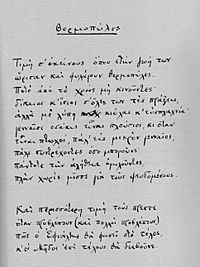 Θερμοπύλες
Τιμὴ σ' ἐκείνους ὅπου στὴν ζωή των
ὥρισαν καὶ φυλάγουν Θερμοπύλες.
Ποτὲ ἀπὸ τὸ χρέος μὴ κινοῦντες·
δίκαιοι κ' ἴσιοι σ' ὅλες των τὲς πράξεις,
ἀλλὰ μὲ λύπη κιόλας κ' εὐσπλαχνία·
γενναῖοι ὁσάκις εἶναι πλούσιοι, κι ὅταν
εἶναι πτωχοί, πάλ' εἰς μικρὸν γενναῖοι,
πάλι συντρέχοντες ὅσο μποροῦνε·
πάντοτε τὴν ἀλήθεια ὁμιλοῦντες,
πλὴν χωρὶς μῖσος γιὰ τοὺς ψευδομένους.
Καὶ περισσότερη τιμὴ τοὺς πρέπει
ὅταν προβλέπουν (καὶ πολλοὶ προβλέπουν)
πὼς ὁ Ἐφιάλτης θὰ φανεῖ στὸ τέλος,
κ' οἱ Μῆδοι ἐπὶ τέλους θὰ διαβοῦνε.